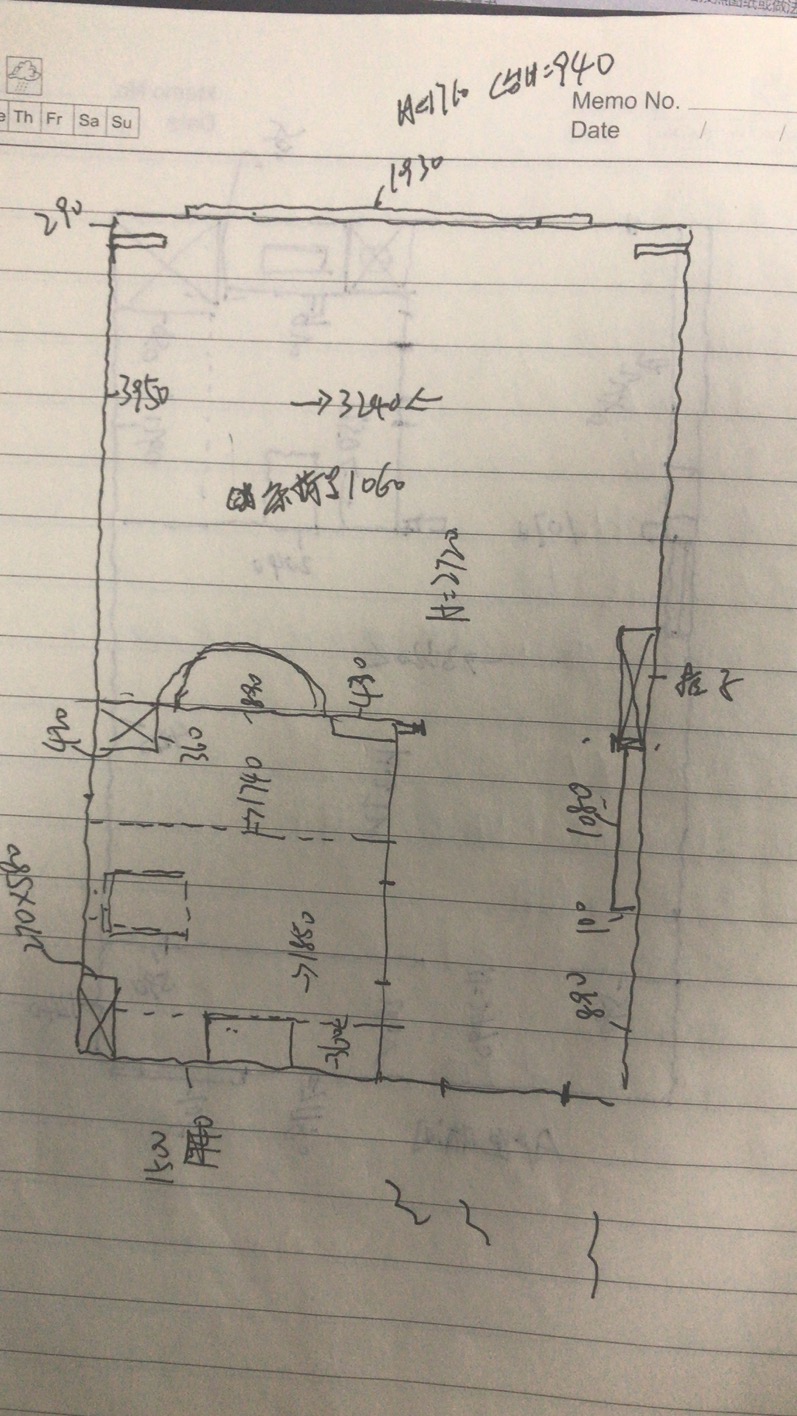 Th Fr Sa Su
H=1760 CSH=940
Memo No.
Date / /
1930
290
3950
→3240←
1060
H=2720
880
430
420
360
1740
1080
270×580
→1850
100
880
360
1500